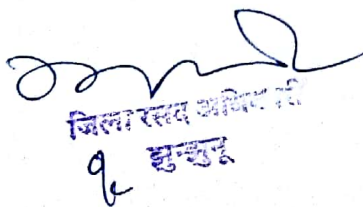 जिला रसद अधिकारी
झुन्झुनू